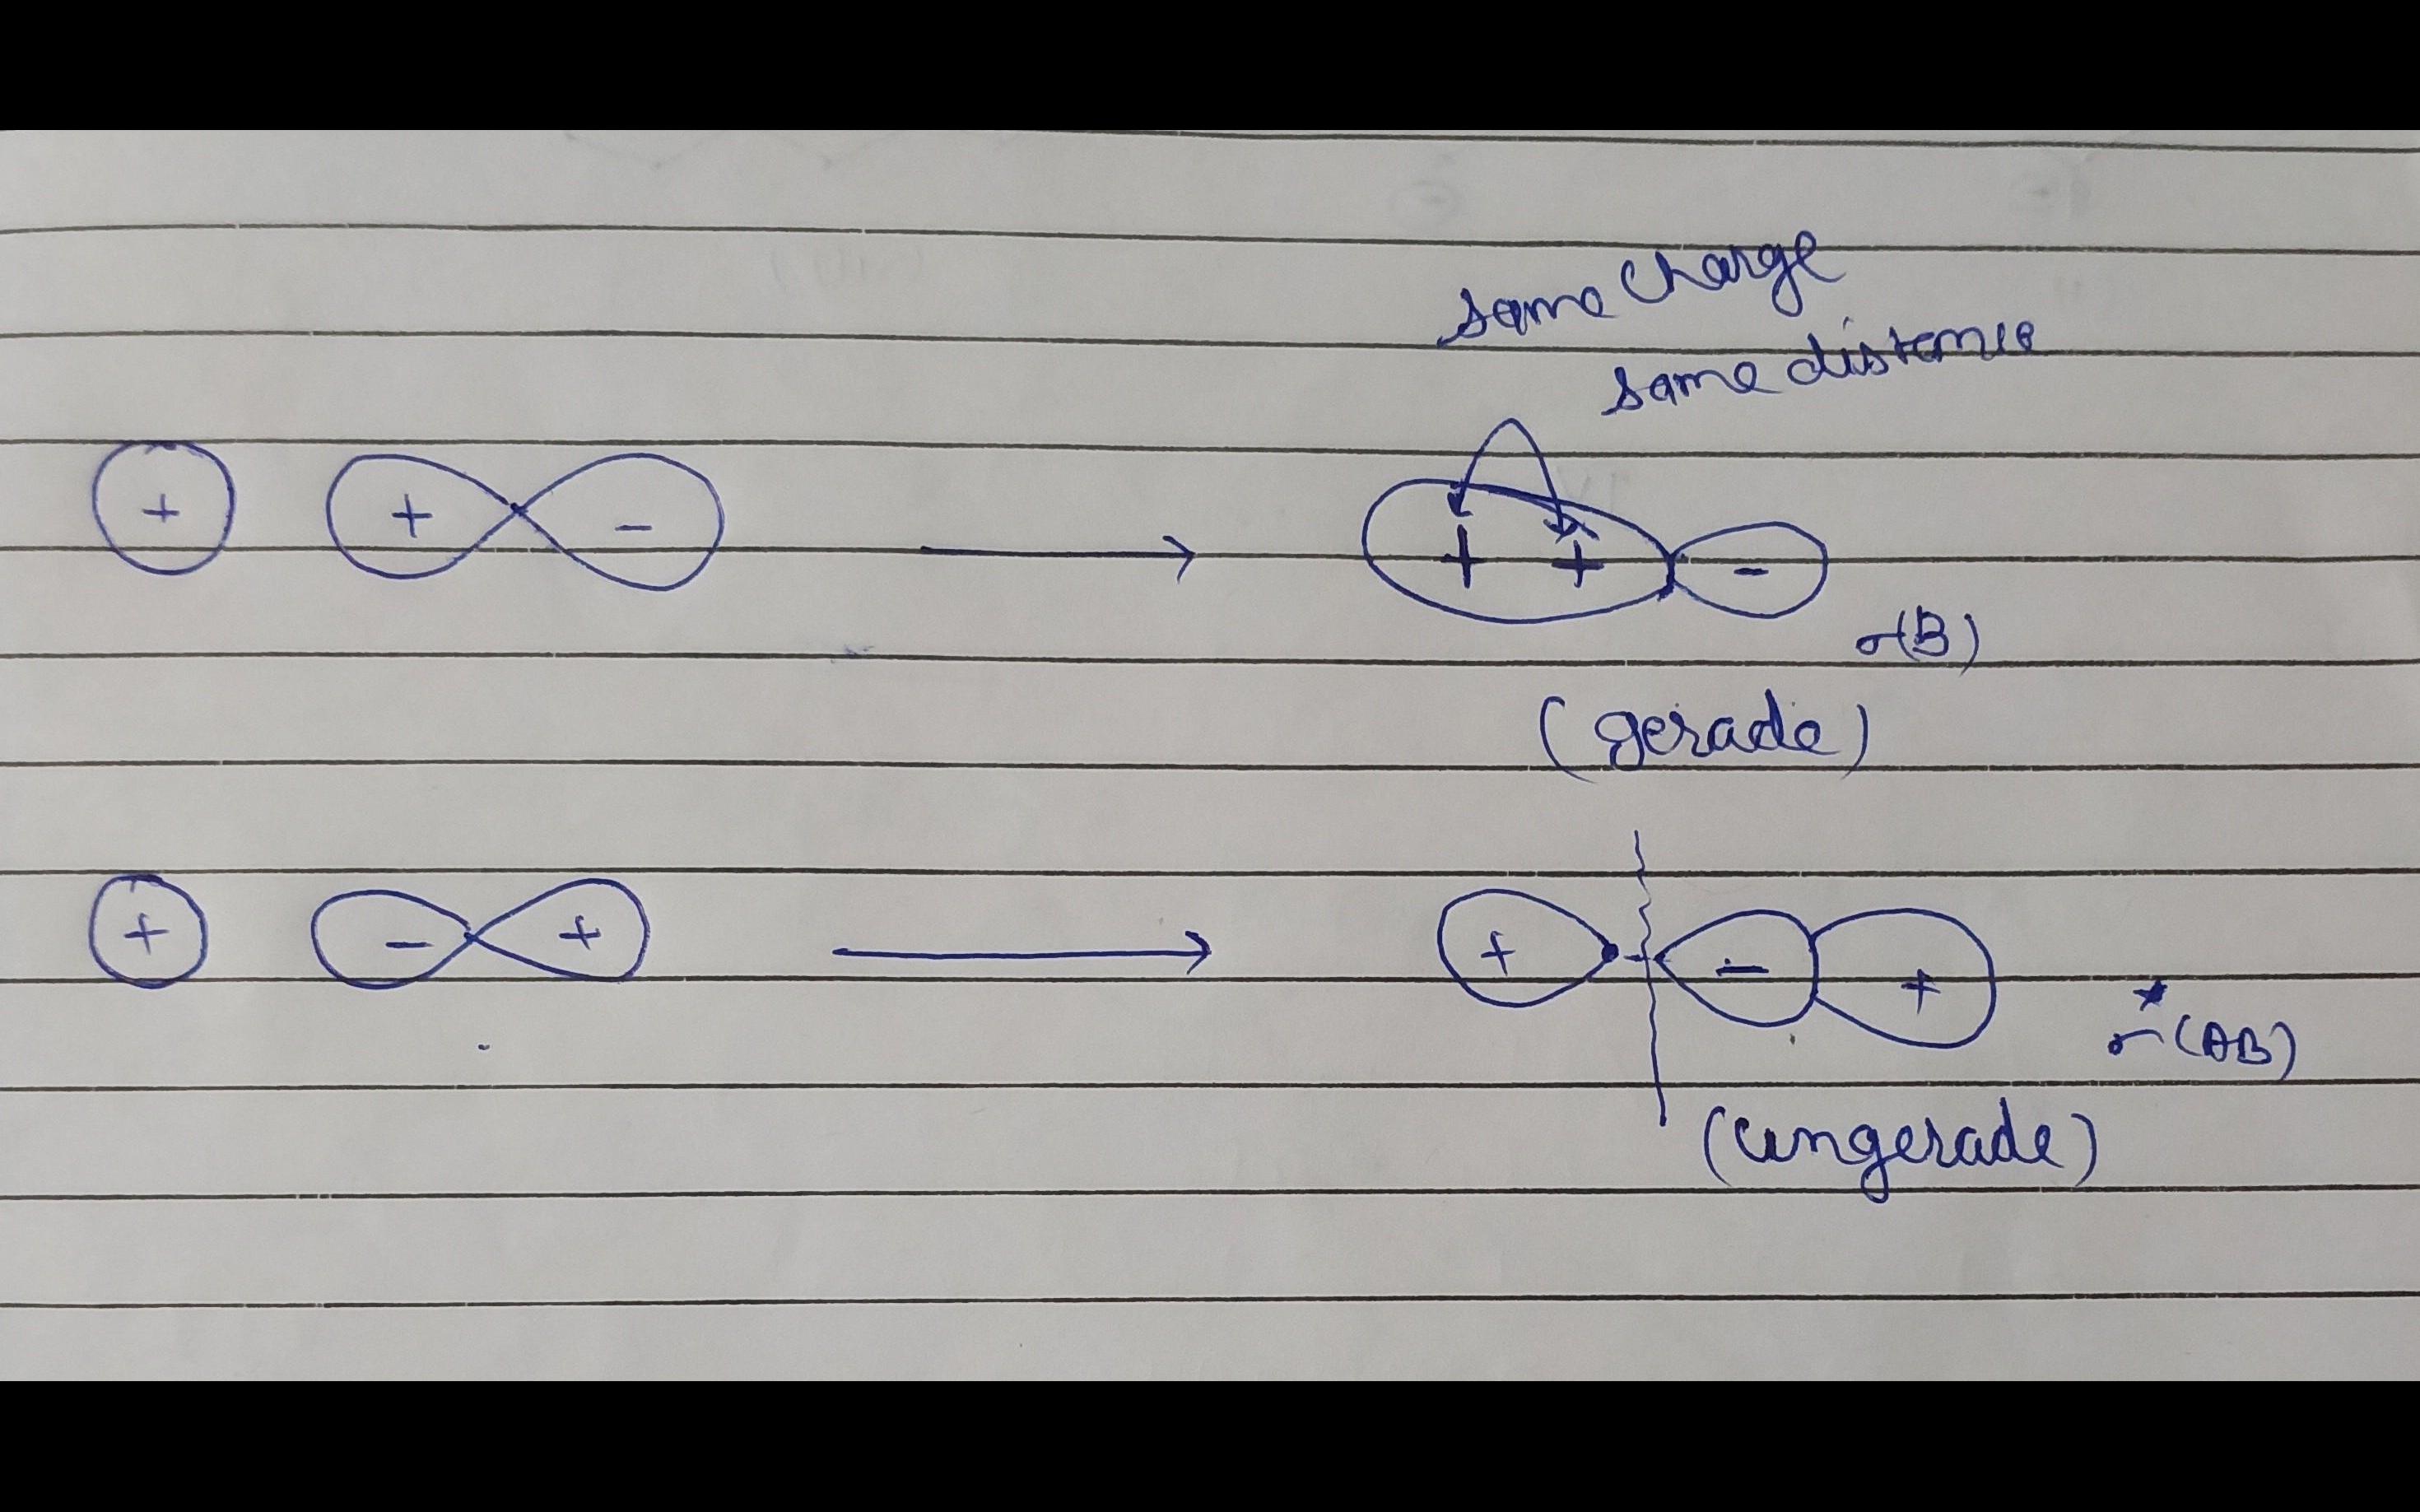 same charge
same distance
+ + - + + -
σ(B)
(gerade)
+ - + + - +
σ*(AB)
(ungerade)